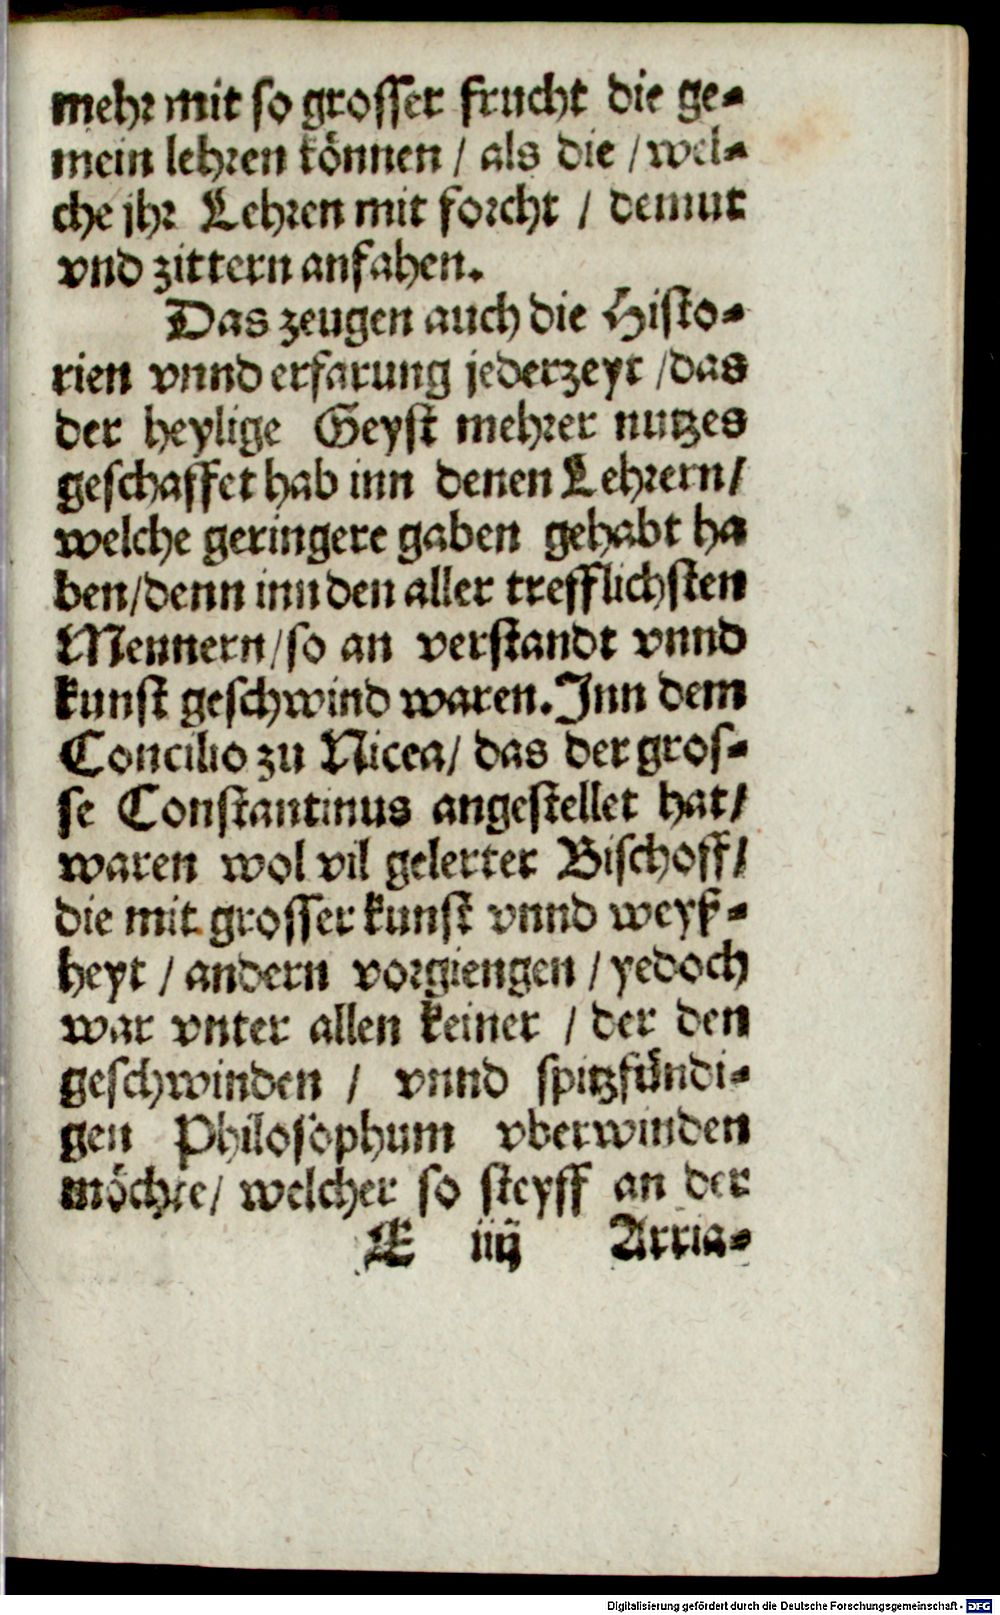 mehr mit so grosser frucht die ge-
mein lehren können / als die / wel-
che jhr Lehren mit forcht / demut
vnd zittern anfahen.
Das zeugen auch die Histo-
rien vnnd erfarung jederzeyt / das
der heylige Geyst mehrer nutzes
geschaffet hab inn denen Lehrern /
welche geringere gaben gehabt ha
ben / denn inn den aller trefflichsten
Mennern / so an verstandt vnnd
kunst geschwind waren. Inn dem
Concilio zu Nicea / das der gros-
se Constantinus angestellet hat /
waren wol vil gelerter Bischoff /
die mit grosser kunst vnnd weyß-
heyt / andern vorgiengen / yedoch
war vnter allen keiner / der den
geschwinden / vnnd spitzfündi-
gen Philosophum vberwinden
möchte / welcher so steyff an der
E iiij Arria-
Digitalisierung gefördert durch die Deutsche Forschungsgemeinschaft - DFG